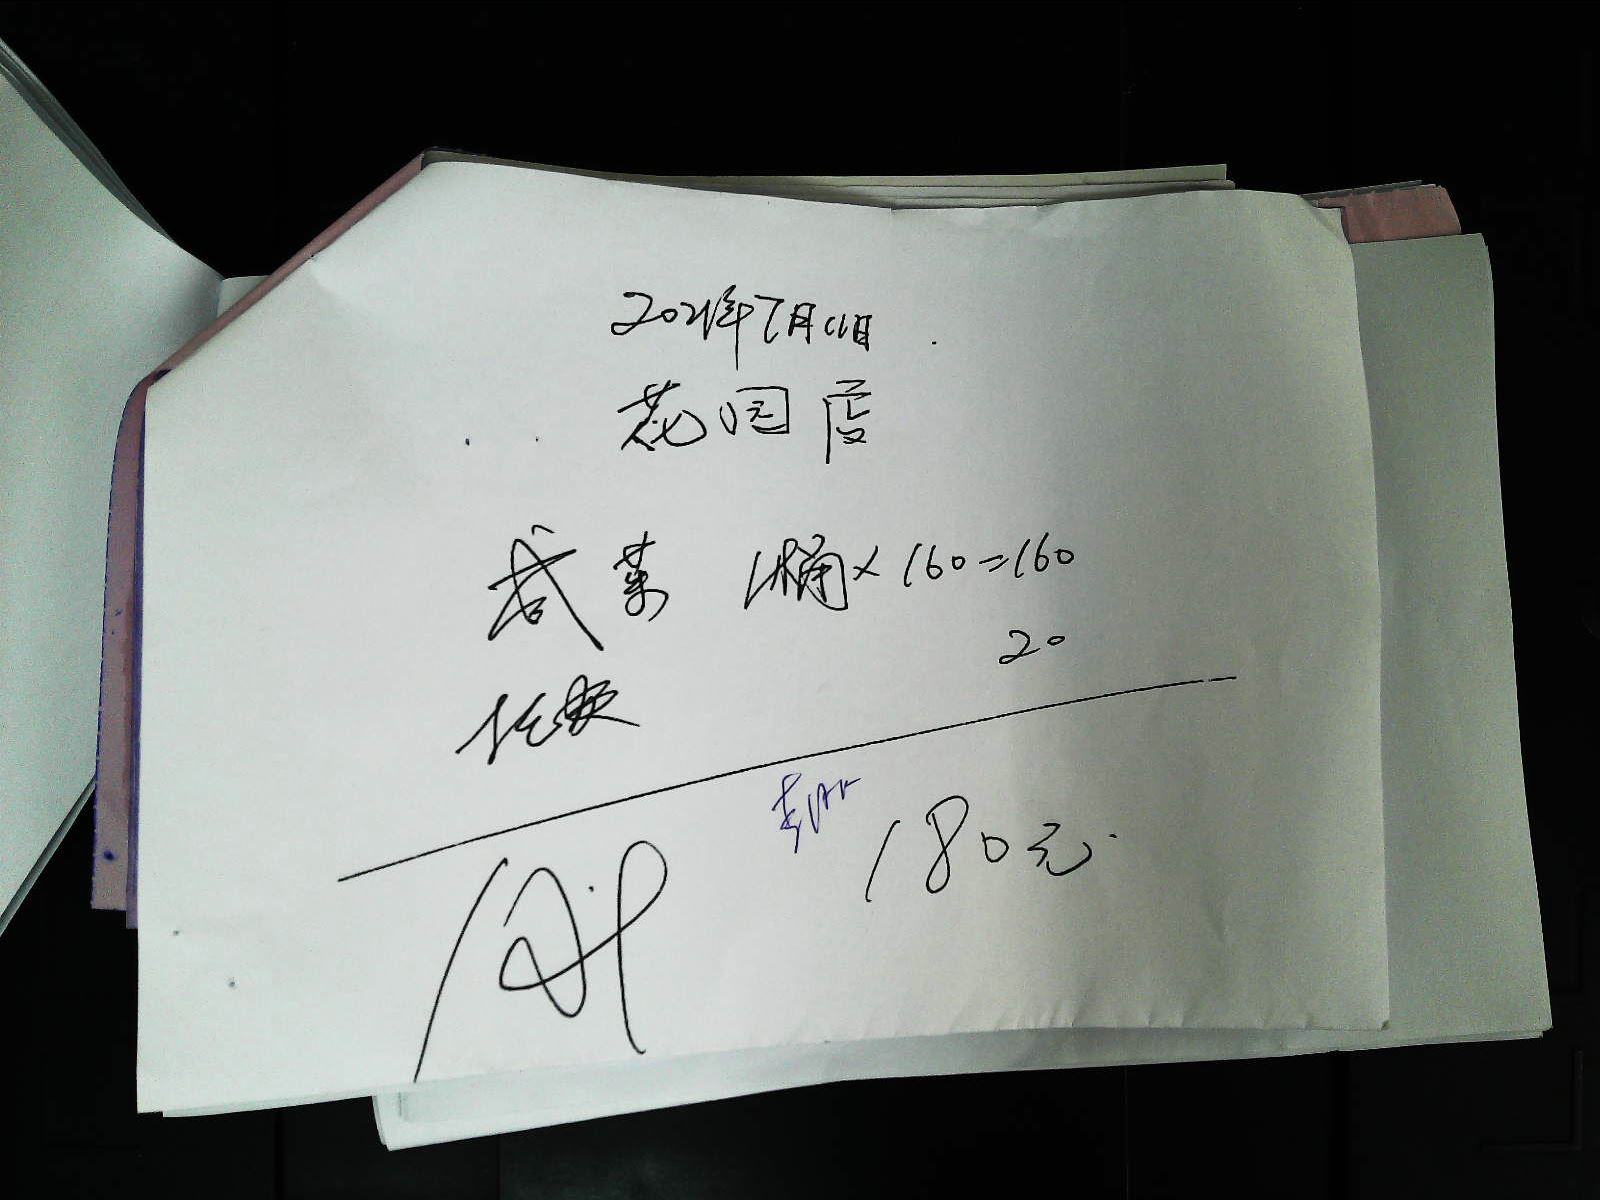 2021年7月11日
花园店
咸菜 1桶×160=160
20
180元